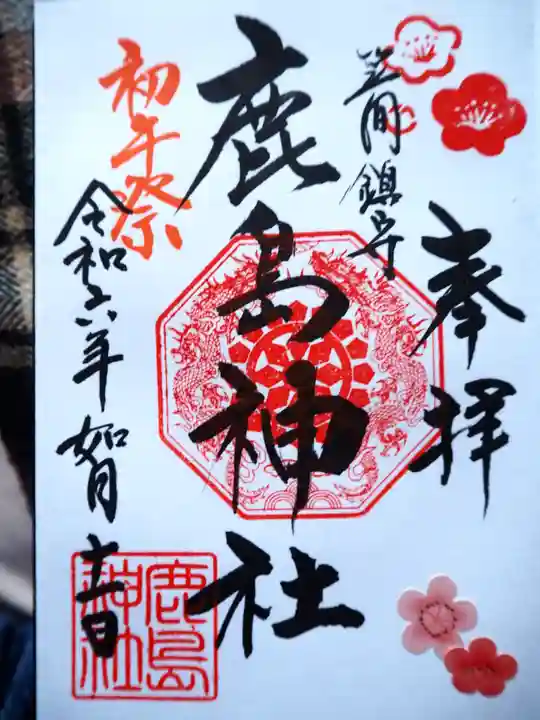 奉拝
笠間鎮守
鹿島神社
初午祭
令和六年 如月
鹿島
神社